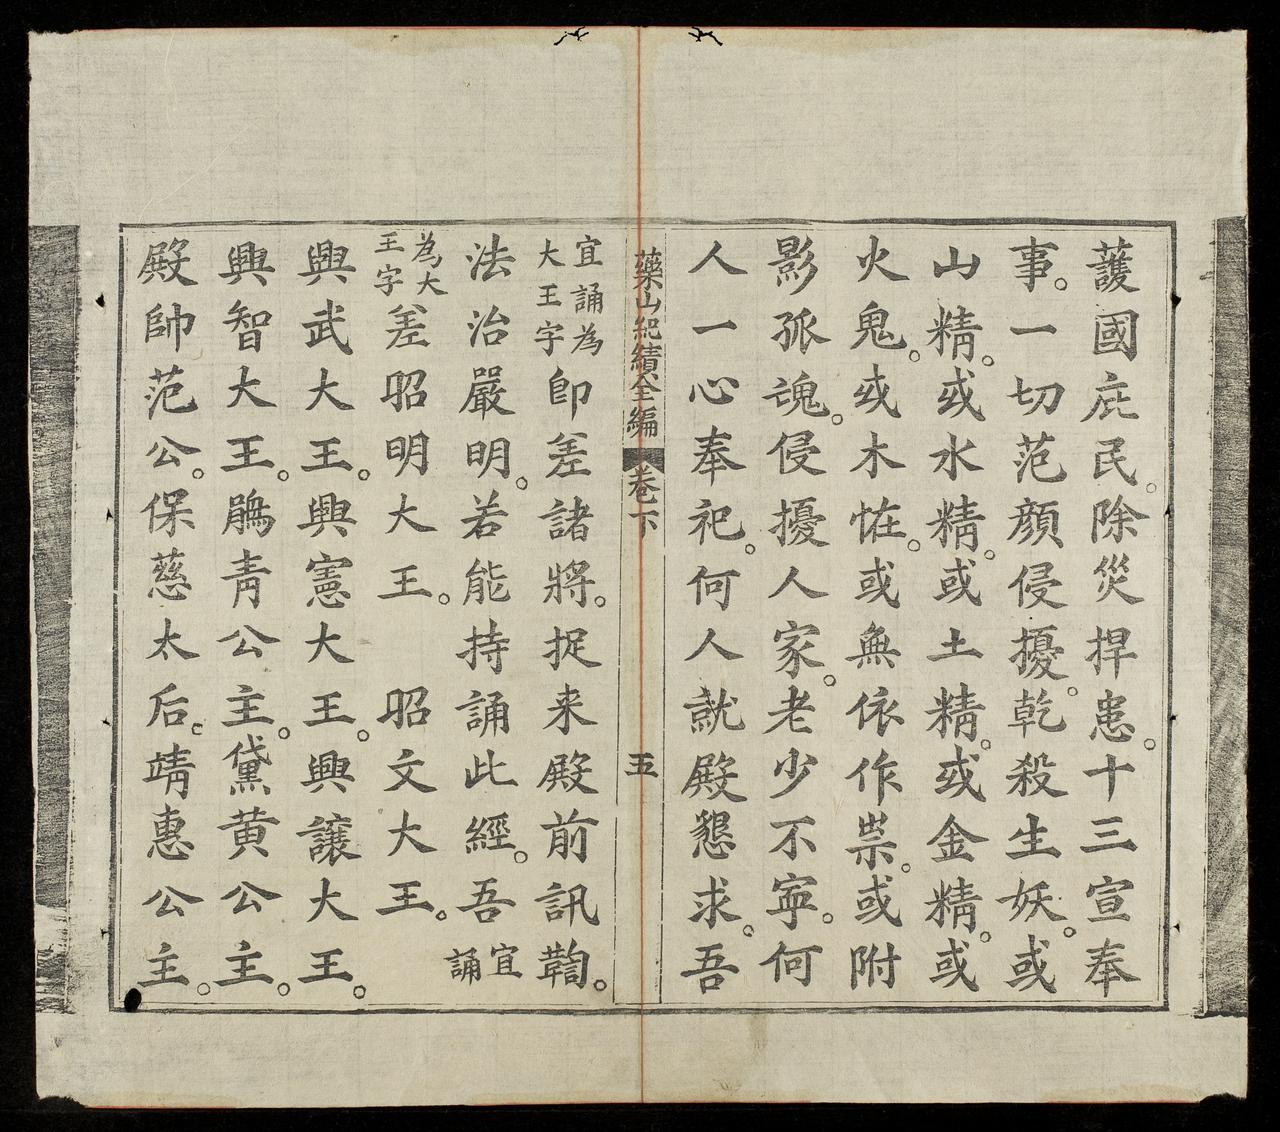 護國庇民。除災捍患。十三宣奉
事。一切范顔侵擾。乾殺生妖。或
山精。或水精。或土精。或金精。或
火鬼。或木恠。或無依作祟。或附
影孤魂。侵擾人家。老少不寕。何
人一心奉祀。何人就殿懇求。吾
藥山紀績全編 卷下 五
宜誦為
大王字
卽差諸將。捉来殿前訊鞫。
法治嚴明。若能持誦此經。吾
宜
誦
為大
王字
差昭明大王。 昭文大王。
興武大王。興憲大王。興讓大王。
興智大王。鵑青公主。黛黄公主。
殿帥范公。保慈太后。靖惠公主。